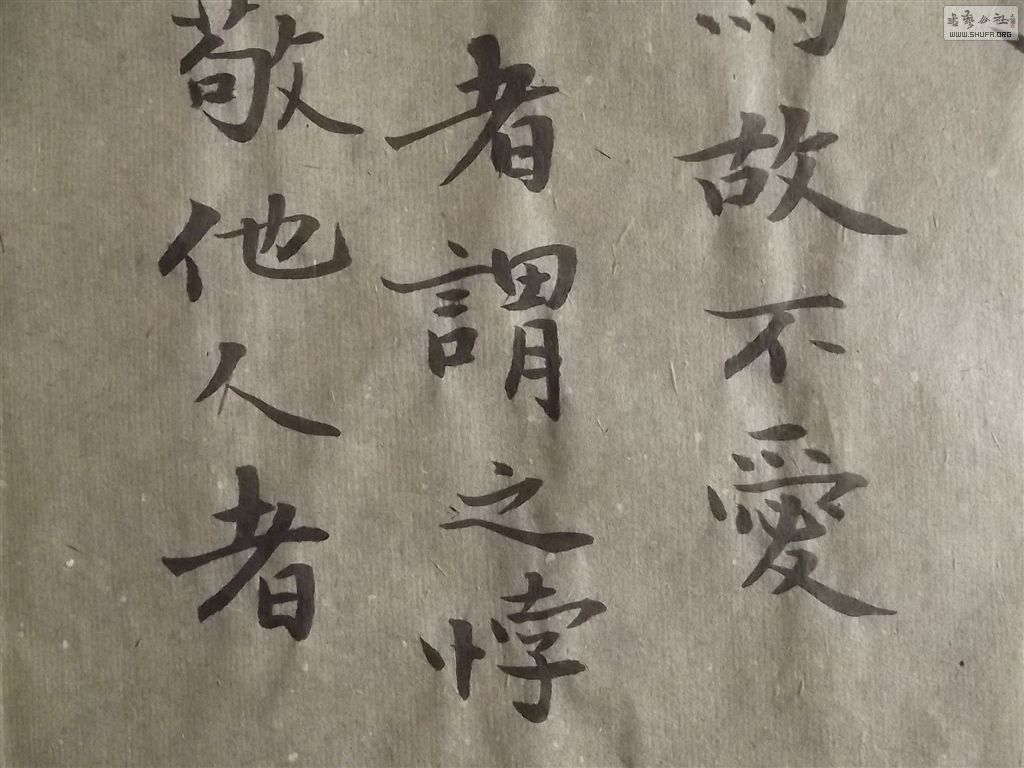 故不愛
者謂之悖
敬他人者
書藝公社
WWW.SHUFA.ORG